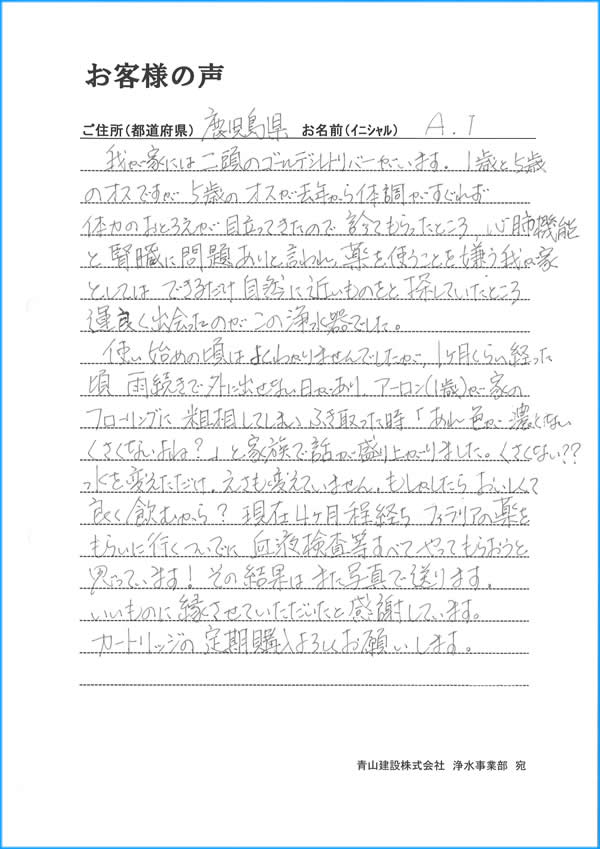 お客様の声
ご住所(都道府県) 鹿児島県 お名前(イニシャル) A.I
我が家には二頭のゴールデンレトリバーがいます。1歳と5歳
のオスですが 5歳のオスが去年から体調がすぐれず
体力のおとろえが目立ってきたので 診てもらったところ 心肺機能
と 腎臓に問題ありと言われ、薬を使うことを嫌う我が家
としては できるだけ自然に近いものをと 探していたところ
運良く出会ったのがこの浄水器でした。
使い始めの頃はよくわかりませんでしたが、1ヶ月くらい経った
頃 雨続きで外に出せない日があり アーロン(1歳)が家の
フローリングに 粗相してしまい ふき取った時 「あれ 色が濃くない
くさくないよね?」と家族で話が盛り上がりました。くさくない??
水を変えただけ。えさも変えていません。もしかしたら おいしくて
良く飲むから? 現在4ヶ月程経ち フィラリアの薬を
もらいに行くついでに 血液検査等すべてやってもらおうと
思っています! その結果はまた写真で送ります。
いいものに縁させていただいたと感謝しています。
カートリッジの定期購入よろしくお願いします。
青山建設株式会社 浄水事業部 宛